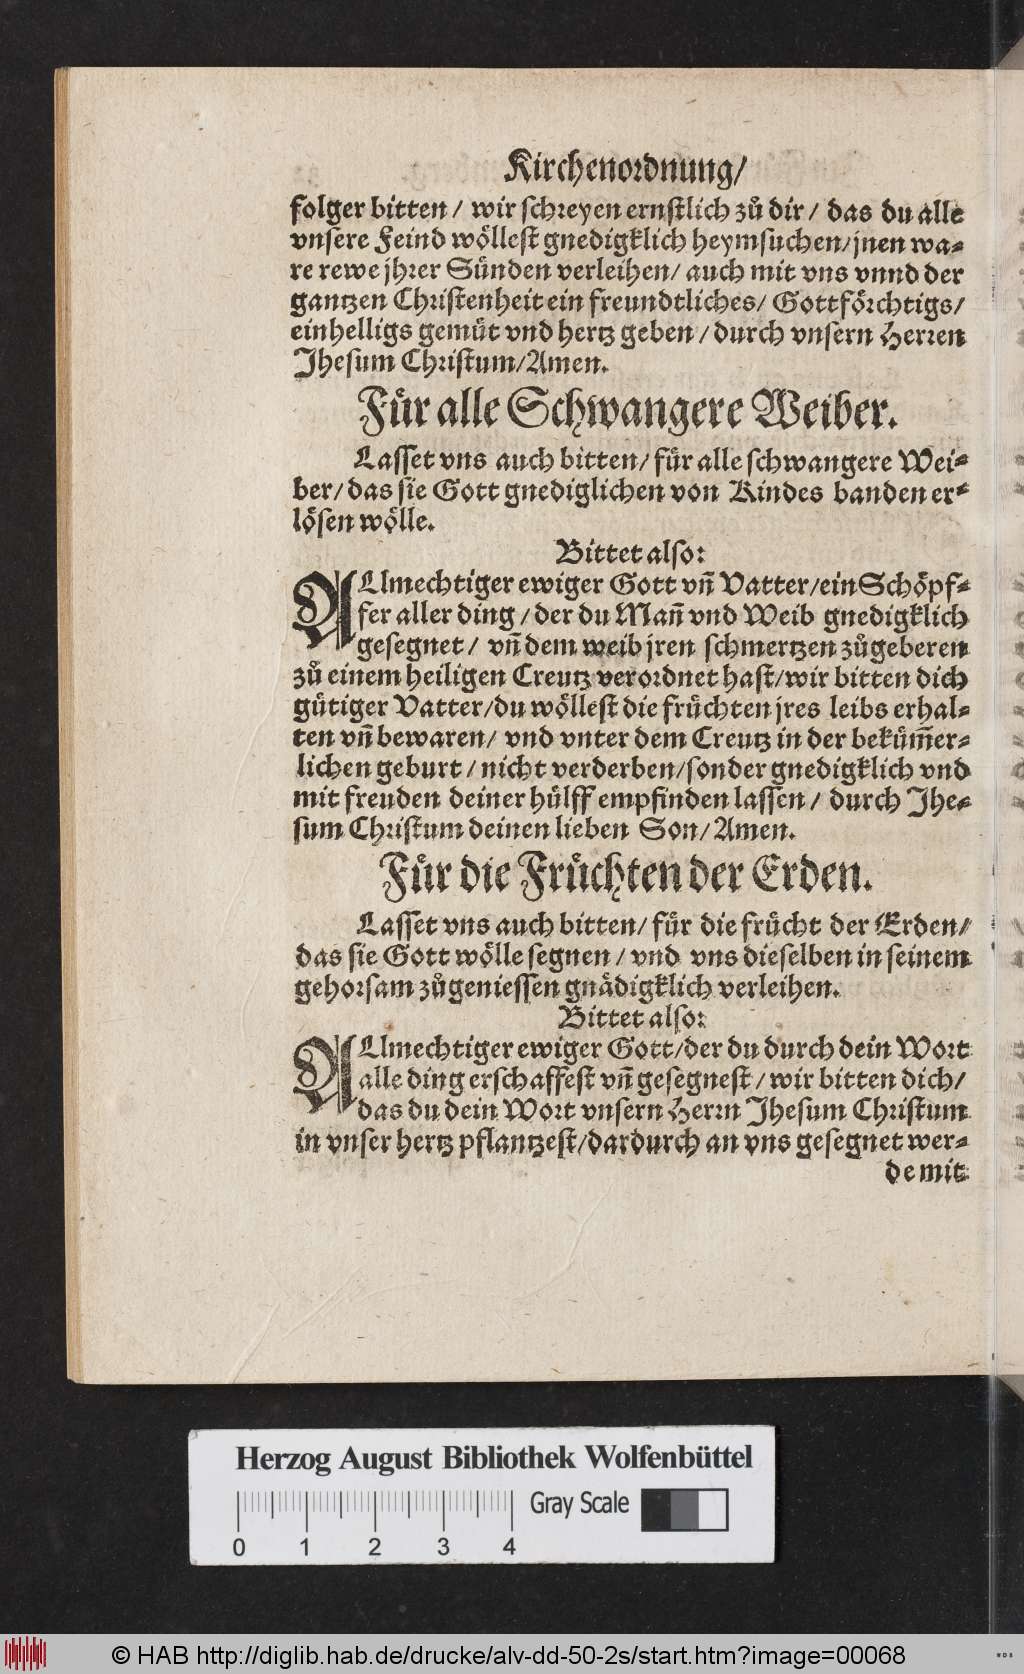 Kirchenordnung/
folger bitten / wir schreyen ernstlich zů dir / das du alle
vnsere Feind wöllest gnedigklich heymsuchen/jnen wa-
re rewe jhrer Sünden verleihen/ auch mit vns vnnd der
gantzen Christenheit ein freundtliches/ Gottförchtigs/
einhelligs gemüt vnd hertz geben / durch vnsern Herren
Jhesum Christum/Amen.
Für alle Schwangere Weiber.
Lasset vns auch bitten/ für alle schwangere Wei-
ber/ das sie Gott gnediglichen von Kindes banden er-
lösen wölle.
Bittet also:
ALlmechtiger ewiger Gott vñ Vatter/ein Schöpf-
fer aller ding / der du Mañ vnd Weib gnedigklich
gesegnet / vñ dem weib jren schmertzen zůgeberen
zů einem heiligen Creutz verordnet hast/wir bitten dich
gütiger Vatter/du wöllest die früchten jres leibs erhal-
ten vñ bewaren/ vnd vnter dem Creutz in der beküm̃er-
lichen geburt / nicht verderben/sonder gnedigklich vnd
mit freuden deiner hülff empfinden lassen / durch Jhe-
sum Christum deinen lieben Son/Amen.
Für die Früchten der Erden.
Lasset vns auch bitten/ für die frücht der Erden/
das sie Gott wölle segnen / vnd vns dieselben in seinem
gehorsam zůgeniessen gnädigklich verleihen.
Bittet also:
ALlmechtiger ewiger Gott/der du durch dein Wort
alle ding erschaffest vñ gesegnest / wir bitten dich/
das du dein Wort vnsern Herrn Jhesum Christum
in vnser hertz pflantzest/dardurch an vns gesegnet wer-
de mit
Herzog August Bibliothek Wolfenbüttel
Gray Scale
0 1 2 3 4
© HAB http://diglib.hab.de/drucke/alv-dd-50-2s/start.htm?image=00068